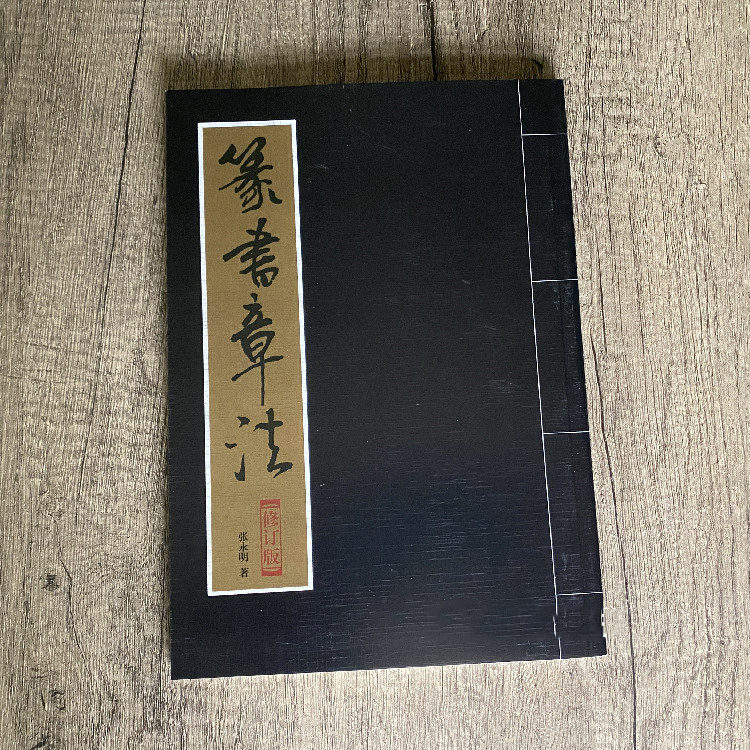 篆书章法
修订版
张永明 著